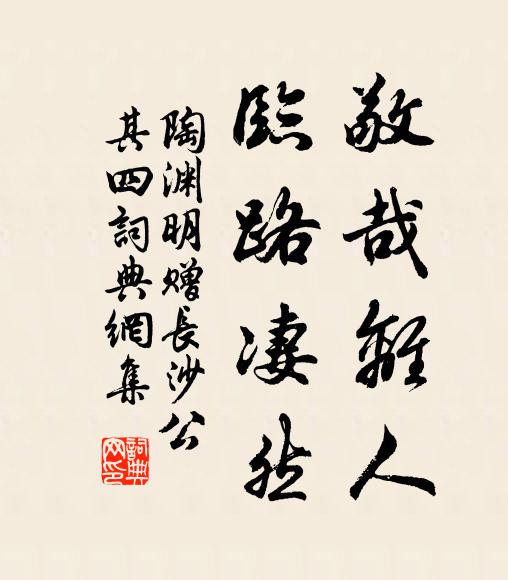 敬哉離人
臨路淒然
陶渊明赠長沙公
其四詞典網集
詞典网印